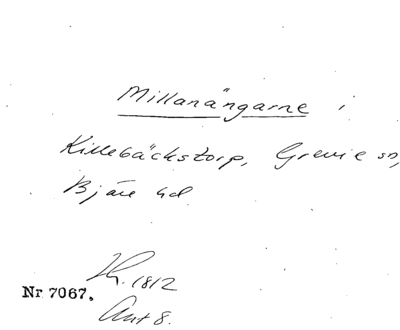 Millanängarne i
Killebäckstorp, Grevie sn,
Bjäre hd
Nr 7067.
1812
Akt 8.